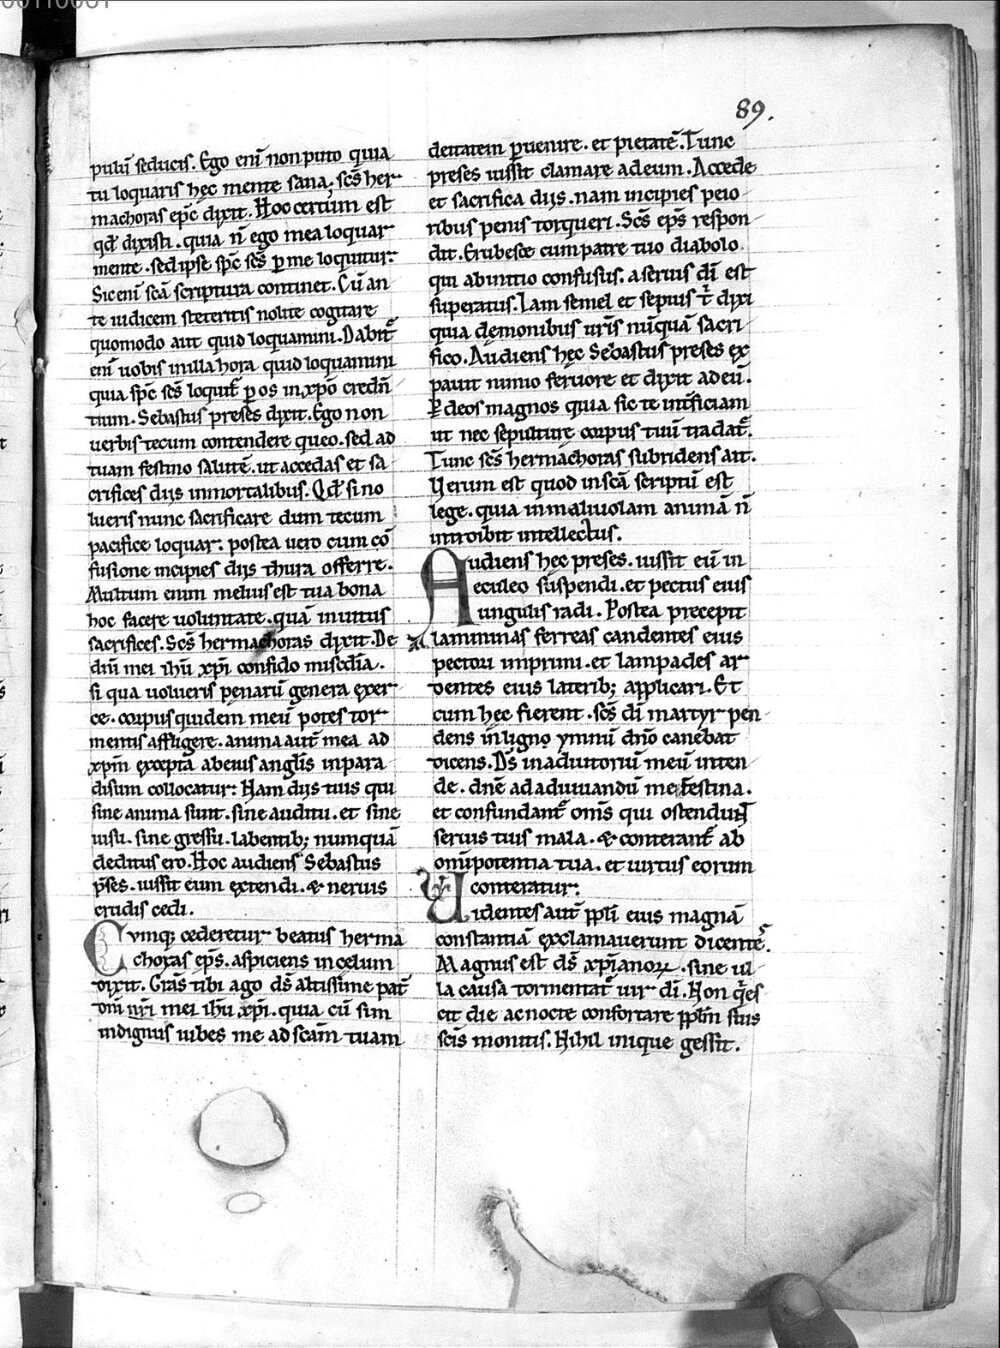 89.
pulū seducis. Ego enī non puto quia
tu loquaris hęc mente sana; scs̄ her
machoras epc̄ dixit. Hoc certum est
qd̄ dixisti. quia n̄ ego mea loquar
mente. sed ipse spc̄ scs̄ ꝑ me loquitur.
Sic enī scā scriptura continet. Cū an
te iudicem steteritis nolite cogitare
quomodo aut quid loquamini. Dabit᷑
enī uobis in illa hora quid loquamini
quia spc̄ scs̄ loquit᷑ ꝑ os in xp̄o credn̄
tium. Sebastus preses dixit. Ego non
uerbis tecum contendere queo. sed ad
tuam festino salutē. ut accedas et sa
crifices diis inmortalibus. Qd̄ si no
lueris nunc sacrificare dum tecum
pacifice loquar: postea uero cum cō
fusione incipies diis thura offerre.
Multum enim melius est tua bona
hoc facere uoluntate. quā inuitus
sacrifices. Scs̄ hermachoras dixit. De
dn̄i mei ihū xp̄i confido miscd̄ia.
si qua uolueris penarū genera exer
ce. corpus quidem meū potes tor
mentis affligere. anima aut̄ mea ad
xp̄m excepta abeius angl̄is in para
disum collocatur: Nam diis tuis qui
sine anima sunt. sine auditu. et sine
uisu. sine gressu. labentib; numquā
deditus ero. Hoc audiens Sebastus
p̄ses. iussit eum extendi. & neruis
crudis cedi.
Cvmq; cederetur beatus herma
choras ep̄s. aspiciens in celum
dixit. Gras̄ tibi ago ds̄ altissime pat᷑
dn̄i nr̄i mei ihū xp̄i. quia cū sim
indignus iubes me ad scām tuam
deitatem ꝑuenire. et pietatē. Tunc
preses iussit clamare ad eum. Accede
et sacrifica diis. nam incipies peio
ribus penis torqueri. Scs̄ ep̄s respon
dit. Erubesce cum patre tuo diabolo
qui ab initio confusus. a seruis dī est
superatus. Iam semel et sepius t᷑ dixi
quia demonibus uris̄ nūquā sacri
fico. Audiens hęc Sebastus preses ex
pauit nimio feruore et dixit ad eū.
Ꝑ deos magnos quia sic te int̄ficiam
ut nec sepulture corpus tuū tradat᷑.
Tunc scs̄ hermachoras subridens ait.
Uerum est quod in scā scriptū est
lege. quia in maliuolam animā n̄
introibit intellectus.
Audiens hęc preses. iussit eū in
eculeo suspendi. et pectus eius
ungulis radi. Postea precepit
lamminas ferreas candentes eius
pectori imprimi. et lampades ar
dentes eius laterib; applicari. Et
cum hęc fierent. scs̄ dī martyr pen
dens in ligno ymnū dn̄o canebat
dicens. Ds̄ in adiutoriū meū inten
de. dn̄e ad adiuuandū me festina.
et confundant᷑ om̄s qui ostendunt
seruis tuis mala. & conterant᷑ ab
omīpotentia tua. et uirtus eorum
conteratur:
Uidentes aut̄ ppl̄i eius magnā
constantiā exclamauerunt dicente᷑.
Magnus est ds̄ xp̄ianoꝝ. sine ul
la causa tormentat᷑ uir dī. Non q̄es
cit die ac nocte confortare ppl̄m suis
scīs monitis. Nihil inique gessit.